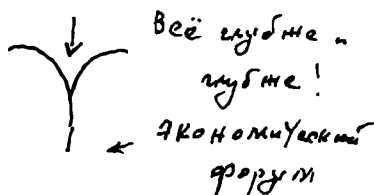 Всё глубже и
глубже!
Экономический
форум